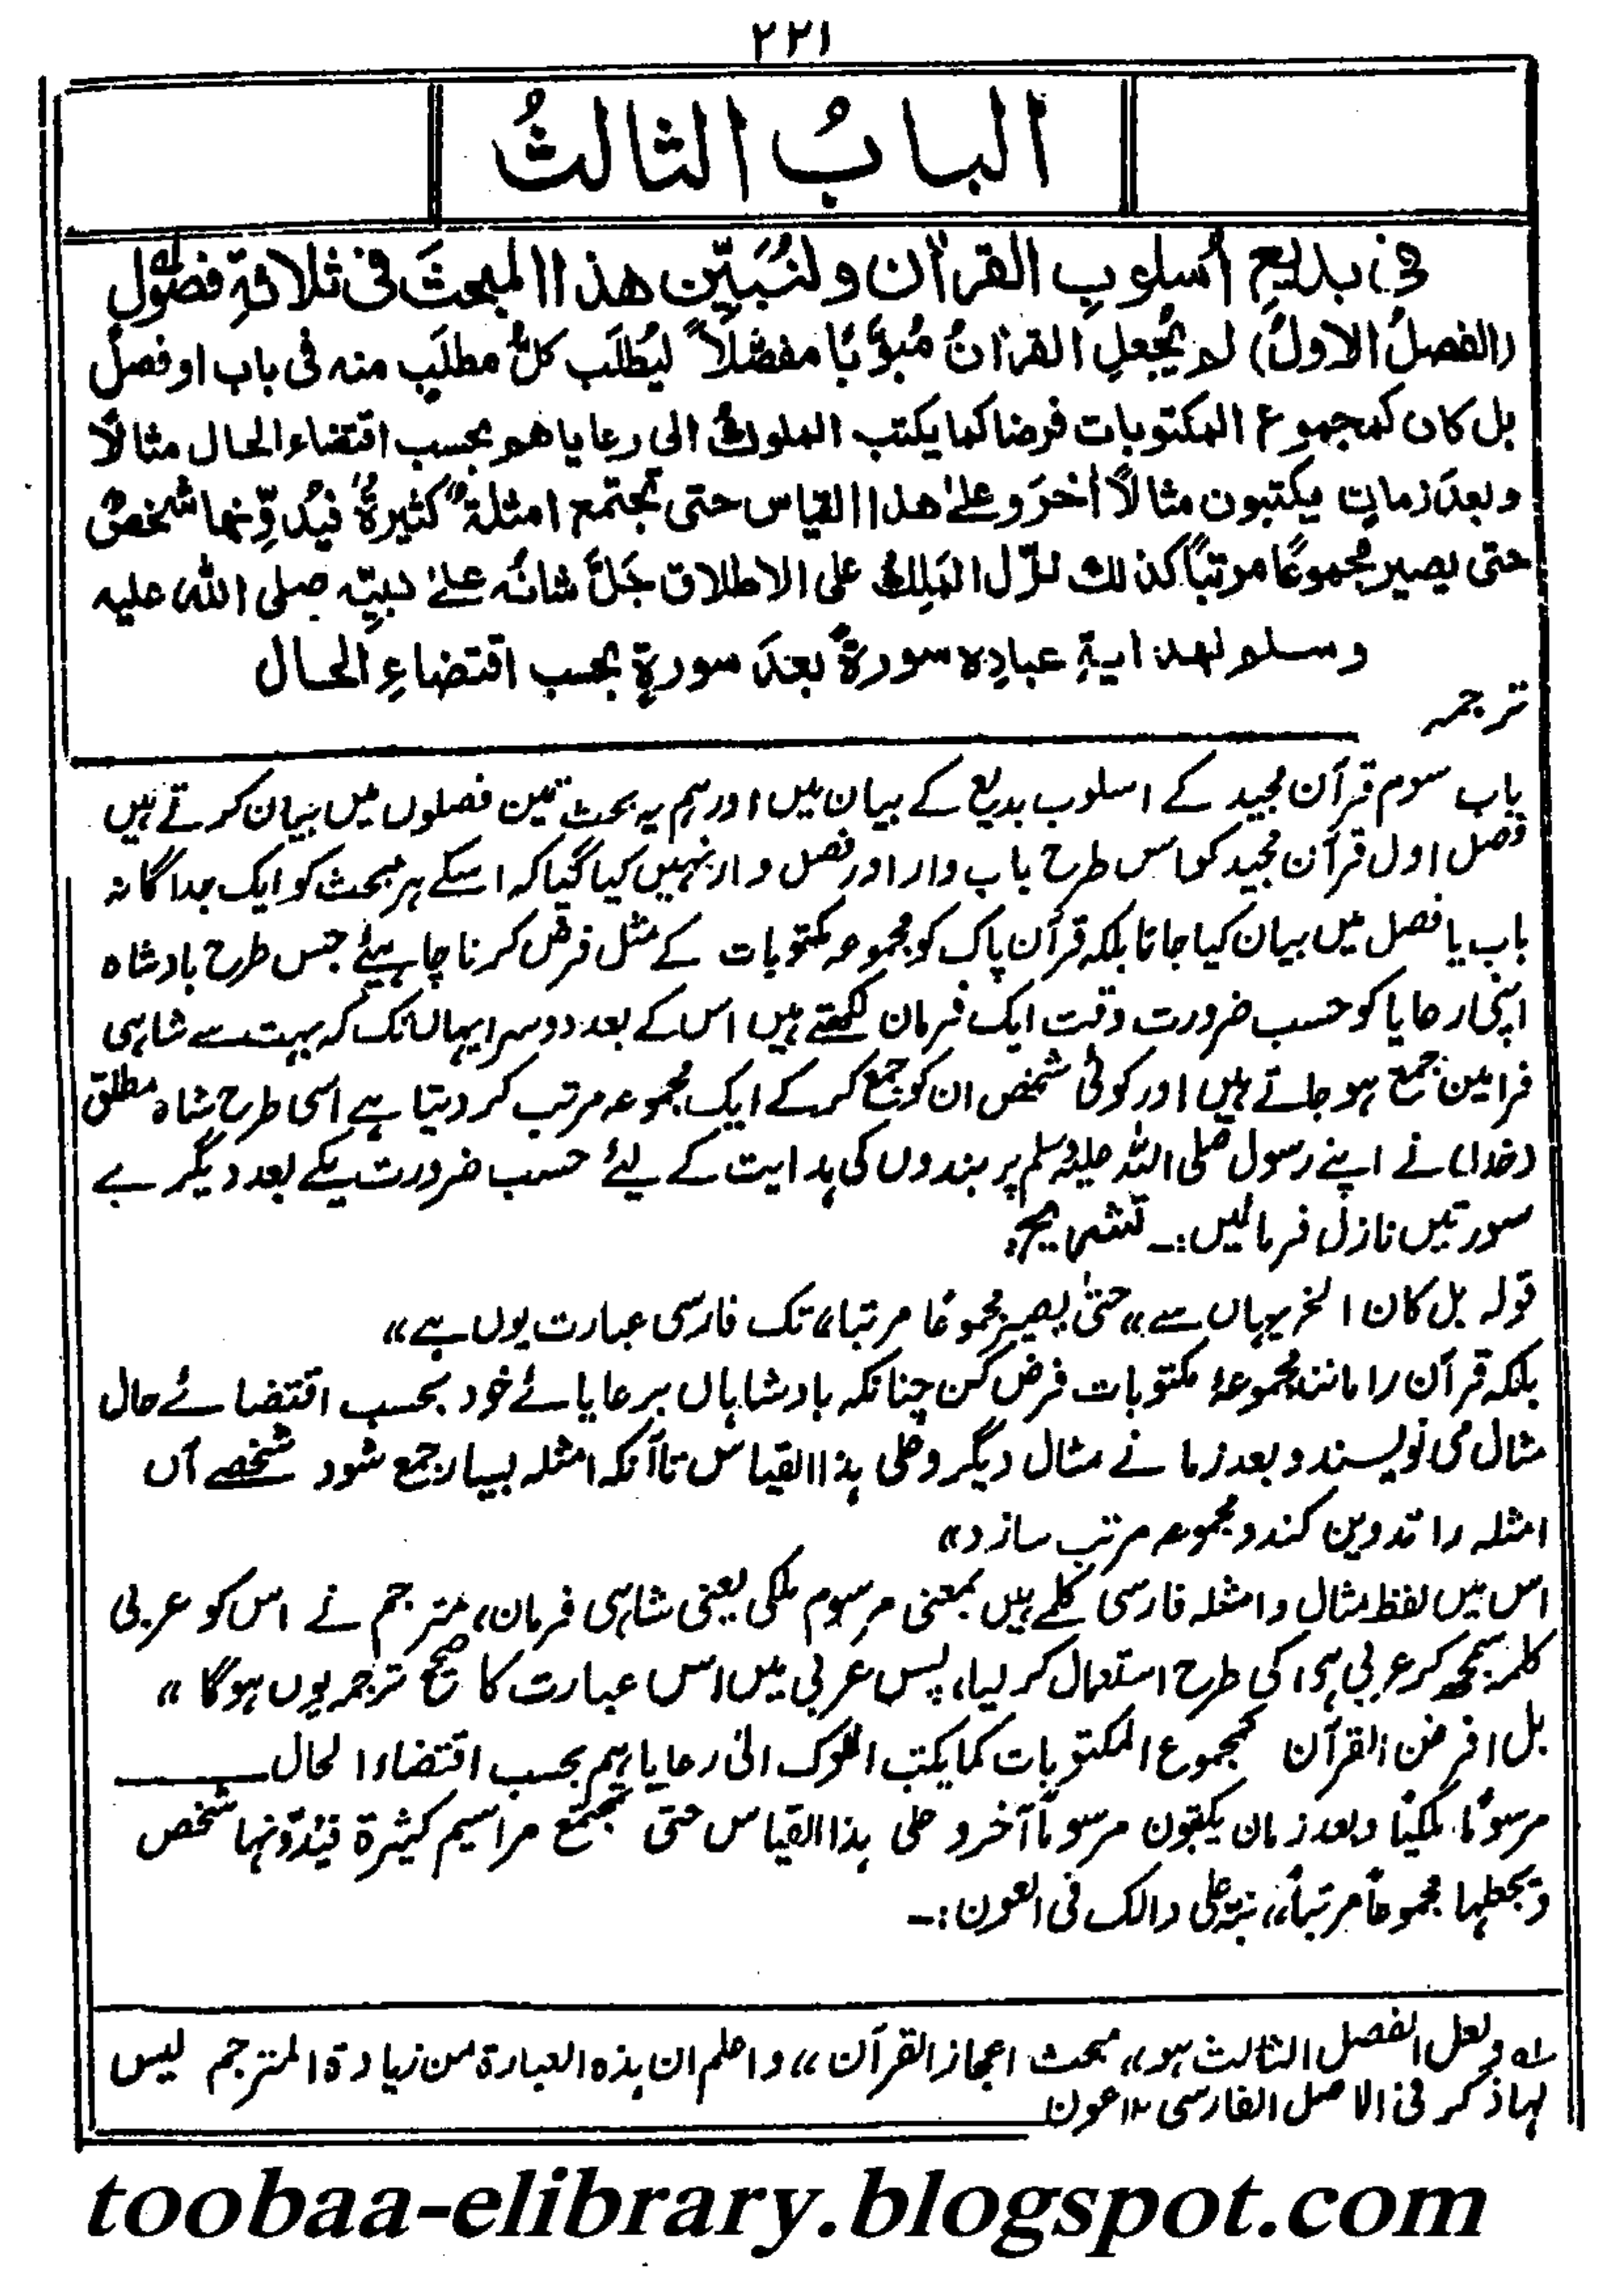 ۲۲۱
البابُ الثالثُ
فی بدیعِ اُسلوبِ القراٰن ولنُبَیِّن هذا المبحثَ فی ثلاثةِ فصُولٍ
(الفصلُ الاولُ) لم یُجعلِ القراٰنُ مُبوَّبًا مفصَّلاً لیُطلَب کلُّ مطلَبٍ منه فی باب او فصلٍ
بل کان کمجموع المکتوبات فرضا کما یکتب الملوكُ الی رعایاهم بحسب اقتضاء الحال مثالًا
وبعدَ زمانٍ یکتبون مثالًا اٰخرَ وعلیٰ هذا القیاس حتی تجتمع امثلةٌ کثیرةٌ فیُدوِّنها شخصٌ
حتی یصیر مجموعًا مرتبًا کذلك نزّل المَلِكُ علی الاطلاق جَلَّ شانُه علیٰ نبیِّه صلی الله علیه
وسلم لهدایةِ عبادِه سورةً بعدَ سورةٍ بحسب اقتضاءِ الحال
ترجمہ
باب سوم قرآن مجید کے اسلوب بدیع کے بیان میں اور ہم یہ بحث تین فصلوں میں بیان کرتے ہیں
فصل اول قرآن مجید کو اس طرح باب وار اور فصل وار نہیں کیا گیا کہ اسکے ہر مبحث کو ایک جداگانہ
باب یا فصل میں بیان کیا جاتا بلکہ قرآن پاک کو مجموعہ مکتوبات کے مثل فرض کرنا چاہیئے جس طرح بادشاہ
اپنی رعایا کو حسب ضرورت وقت ایک فرمان لکھتے ہیں اس کے بعد دوسرا یہاں تک کہ بہت سے شاہی
فرامین جمع ہو جاتے ہیں اور کوئی شخص ان کو جمع کر کے ایک مجموعہ مرتب کر دیتا ہے اسی طرح شاہ مطلق
(خدا) نے اپنے رسول صلی اللہ علیہ وسلم پر بندوں کی ہدایت کے لیئے حسب ضرورت یکے بعد دیگرے
سورتیں نازل فرمائیں:۔ تشریح:
قولہ بل کان الخ یہاں سے ،،حتیٰ یصیر مجموعًا مرتبا،، تک فارسی عبارت یوں ہے ،،
بلکہ قرآن را مانند مجموعۂ مکتوبات فرض کن چنانکہ بادشاہاں برعایائے خود بحسب اقتضائے حال
مثال می نویسند و بعد زمانے مثال دیگر وعلی ہذا القیاس تا آنکہ امثلہ بسیار جمع شود شخصے آں
امثلہ را تدوین کند و مجموعہ مرتب سازد ،،
اس میں لفظ مثال و امثلہ فارسی کلمے ہیں بمعنی مرسوم ملکی یعنی شاہی فرمان، مترجم نے اس کو عربی
کلمہ سمجھ کر عربی ہی کی طرح استعمال کر لیا، پس عربی میں اس عبارت کا صحیح ترجمہ یوں ہوگا ،،
بل افرض القرآن کمجموع المکتوبات کما یکتب الملوک الی رعایاہم بحسب اقتضاء الحال
مرسومًا ملکیًا وبعد زمان یکتبون مرسومًا آخر و علی ہذا القیاس حتی تجتمع مراسیم کثیرۃ فیُدوّنہا شخص
ویجعلہا مجموعًا مرتبًا،، نبّہ علی ذالک فی العون:۔
لہ ولعل الفصل الثالث ہو،، مبحث اعجاز القرآن،، واعلم ان ہذہ العبارۃ من زیادۃ المترجم لیس
لہا ذکر فی الاصل الفارسی ۱۲ عون
toobaa-elibrary.blogspot.com